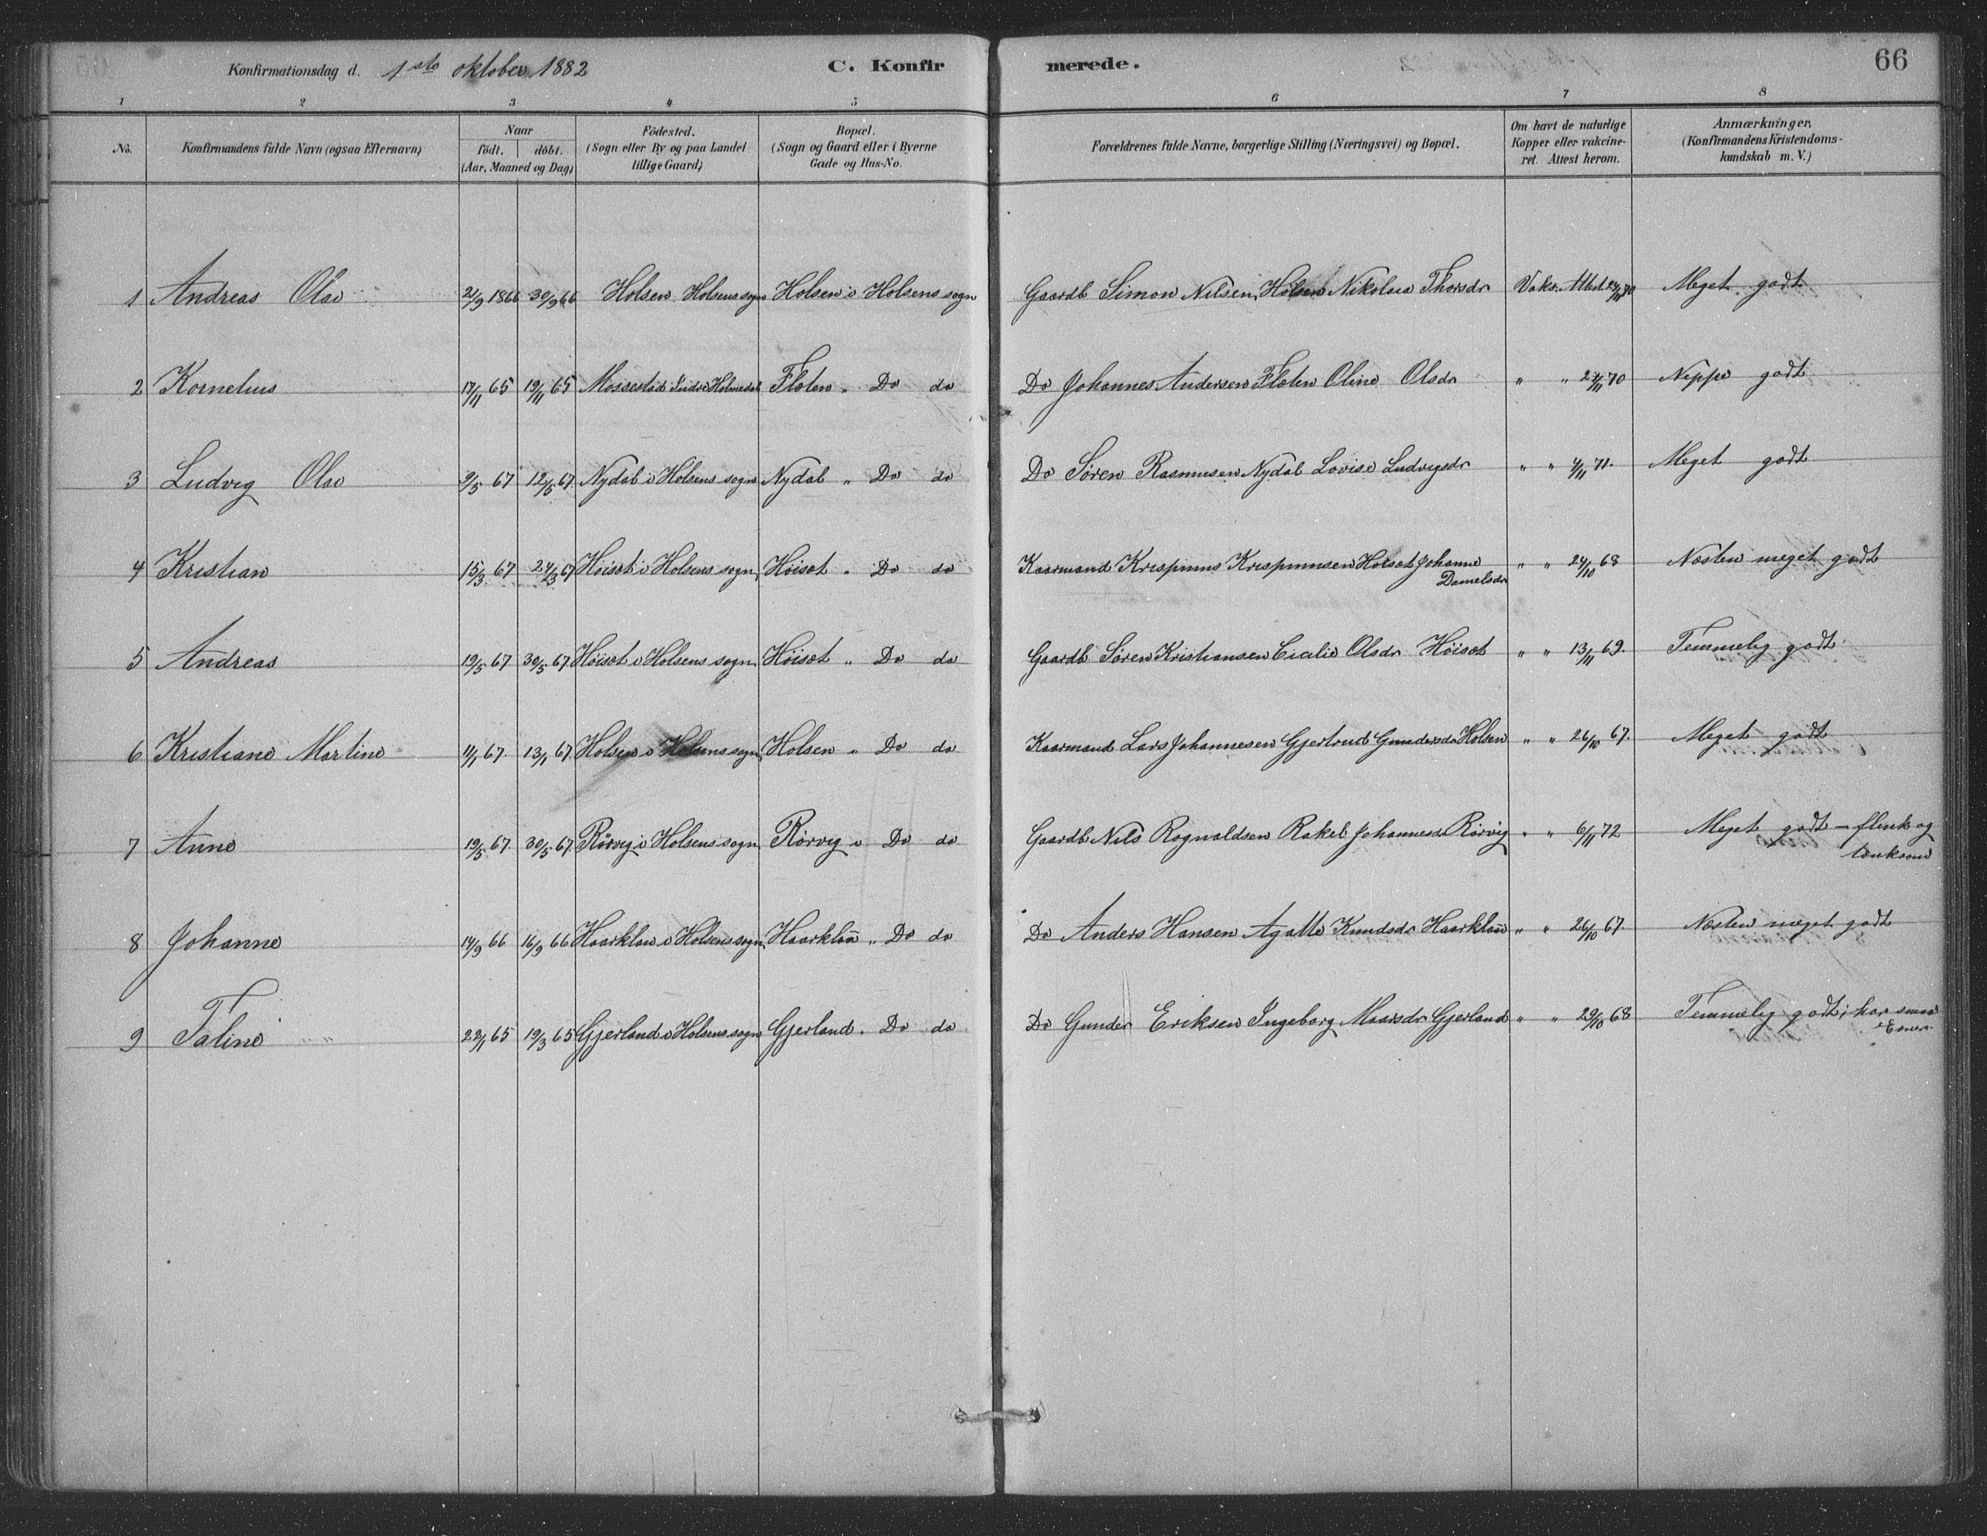 Konfirmationsdag d. 1ste oktober 1882 C. Konfirmerede. 66
1 2 3 4 5 6 7 8
No. Konfirmandens fulde Navn (ogsaa Efternavn) Naar födt. döbt. (Aar, Maaned og Dag) Födested. (Sogn eller By og paa Landet tillige Gaard) Bopæl. (Sogn og Gaard eller i Byerne Gade og Hus-No. Forældrenes fulde Navne, borgerlige Stilling (Næringsvei) og Bopæl. Om havt de naturlige Kopper eller vakcineret. Attest herom. Anmærkninger. (Konfirmandens Kristendomskundskab m. V.)
1 Andreas Olai 21/9 1866 30/9 66 Holsen Holsens sogn Holsen i Holsens sogn Gaardb Simon Nilsen Holsen Nikolaia Thorsdr Vaks. Attest 24/11 70 Meget godt
2 Kornelius 17/11 65 19/11 65 Mossestad Indre Holmedal Flöten " Do do Do Johannes Andersen Flöten Oline Olsdr " " 24/11 70 Neppe godt
3 Ludvig Olai 9/5 67 12/5 67 Nydal i Holsens sogn Nydal " Do do Do Sören Rasmusen Nydal Lovise Ludvigsdr " " 4/11 71. Meget godt
4 Kristian 15/3 67 24/3 67 Höisæt i Holsens sogn Höisæt " Do do Kaarmand Krispinus Krispinusen Höisæt Johanne Danielsdr " " 24/10 68 Næsten meget godt
5 Andreas 19/5 67 30/5 67 Höisæt i Holsens sogn Höisæt " Do do Gaardb Sören Kristiansen Cicilie Olsdr Höisæt " " 13/11 69. Temmelig godt
6 Kristiane Martine 11/1 67. 13/1 67 Holsen i Holsens sogn Holsen " Do do Kaarmand Lars Johannesen Gjertrud Gundersdr Holsen " " 26/10 67. Meget godt
7 Anne 19/5 67. 30/5 67. Rörvig i Holsens sogn Rörvig i Do do Gaardb Nils Ragnvaldsen Rakel Johannesdr Rörvig " " 6/11 72 Meget godt – flink og tænksom
8 Johanne 14/9 66 16/9 66 Haarklau i Holsens sogn Haarklau " Do do Do Anders Hansen Agatte Knudsdr Haarklau " " 26/10 67. Næsten meget godt
9 Taline 22/1 65 19/3 65 Gjerland i Holsens sogn Gjerland . Do do Do Gunder Eriksen Ingeborg Maarsdr Gjerland " " 29/10 68 Temmelig godt; har smaa Evner